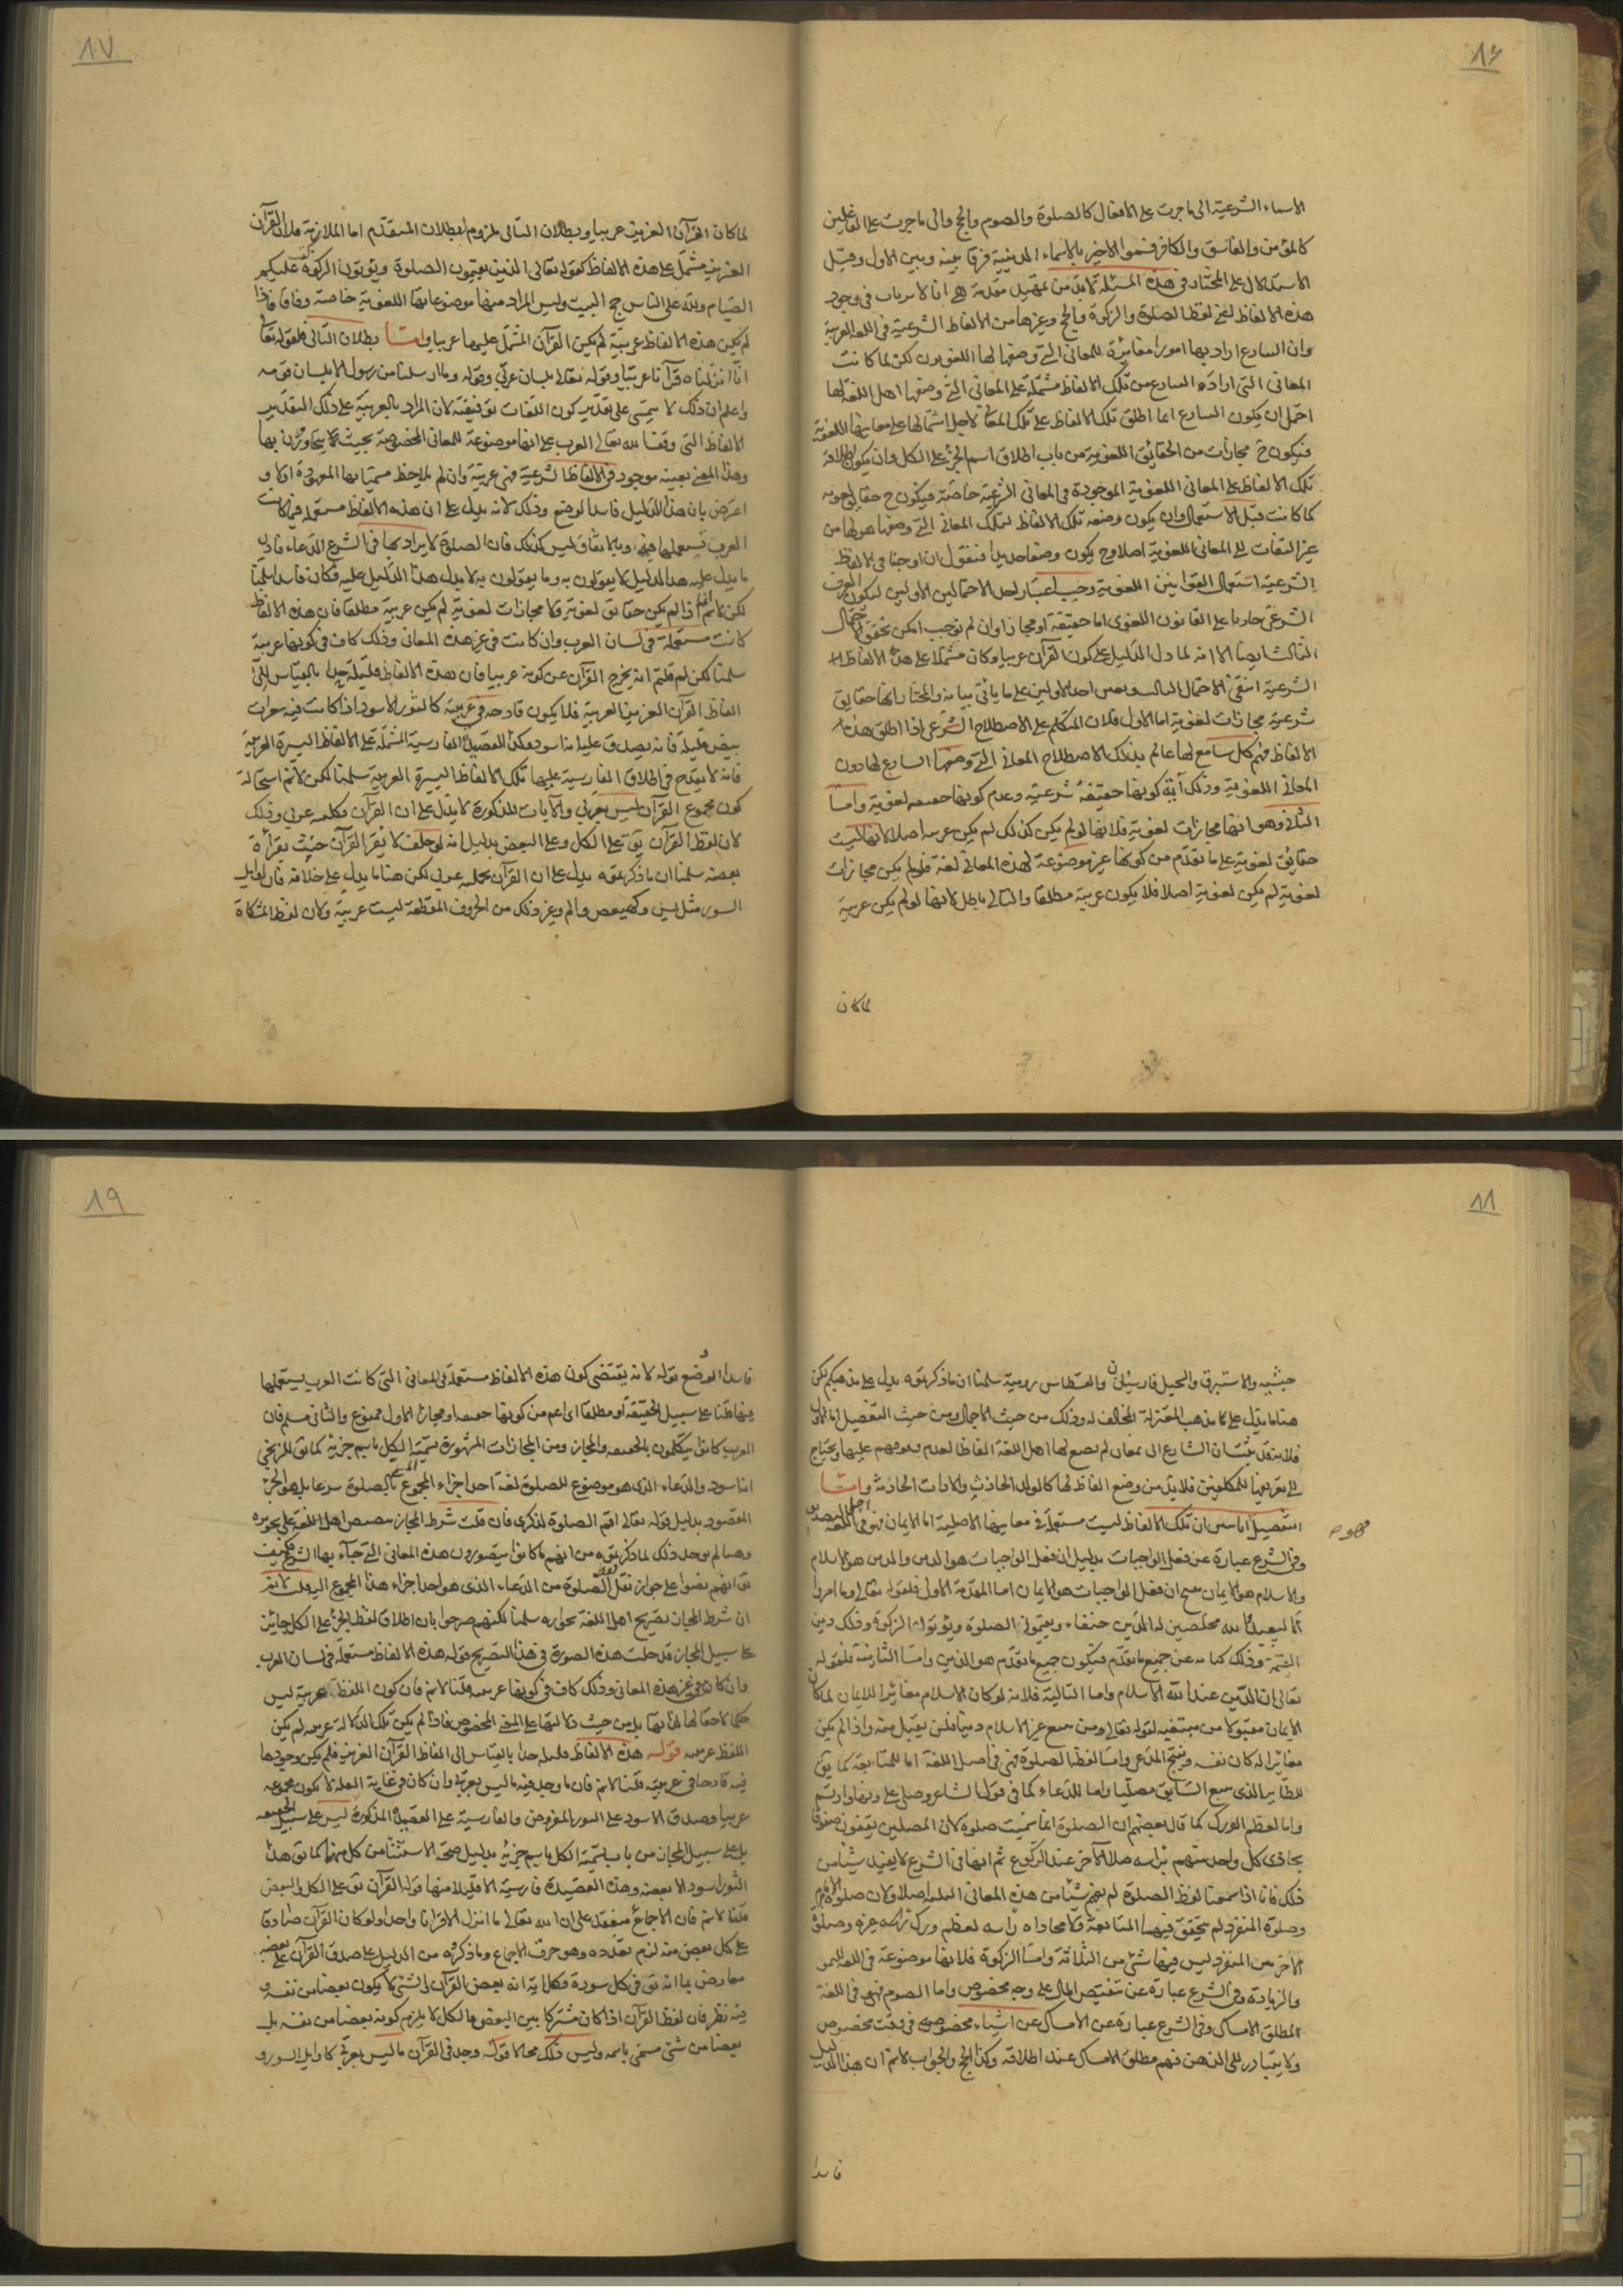 ١٦
الاسماء الشرعية الى ما جرت على الافعال كالصلوة والصوم والحج والى ما جرت على الفاعلين
كالمؤمن والفاسق والكافر فسموا الاخير بالاسماء الدينية فرقا بينه وبين الاول وقبل
الاستدلال على المختار فى هذه المسئلة لابد من تمهيل مقدمة هى انا لا نرتاب فى وجود
هذه الالفاظ اعنى لفظ الصلوة والزكوة والحج وغيرها من الالفاظ الشرعية فى اللغه العربية
وان الشارع اراد بها امورا مغايرة للمعانى التى وضعها لها اللغويون لكن لما كانت
المعانى التى ارادها الشارع من تلك الالفاظ مشتملة على المعانى التى وضعها اهل اللغة لها
احتمل ان يكون الشارع انما اطلق تلك الالفاظ على تلك المعانى لاجل اشتمالها على معانيها اللغوية
فيكون ح مجازات من الحقائق اللغوية من باب اطلاق اسم الجزء على الكل وان يكون اطلاقه
تلك الالفاظ على المعانى اللغوية الموجودة فى المعانى الشرعية خاصة فيكون ح حقايق لغويه
كما كانت قبل الاستعمال وان يكون وضعه تلك الالفاظ لتلك المعانى التى وضعها هو لها من
غير التفات الى المعانى اللغوية اصلا وح يكون وضعا جديدا فنقول ان اوجبنا فى الالفاظ
الشرعية استعمال القوانين اللغوية وجب اعتبار احد الاحتمالين الاولين ليكون العرف
الشرعى جاريا على القانون اللغوى اما حقيقة او مجازا وان لم نوجب امكن تحقق الاحتمال
الثالث ايضا الا انه لما دل الدليل على كون القرآن عربيا وكان مشتملا على هذه الالفاظ
الشرعية انتفى الاحتمال الثالث وتعين احد الاولين على ما ياتى بيانه والمختار انها حقايق
شرعية مجازات لغوية اما الاول فلان المتكلم على الاصطلاح الشرعى اذا اطلق هذه
الالفاظ فهم كل سامع لها عالم بذلك الاصطلاح المعانى التى وضعها الشارع لها دون
المعانى اللغوية وذلك آية كونها حقيقة شرعية وعدم كونها حقيقه لغوية واما
الثانى وهو انها مجازات لغوية فلانها لو لم يكن كذلك لم يكن عربيه اصلا لانها ليست
حقائق لغوية على ما تقدم من كونها غير موضوعة لهذه المعانى لغة فلو لم يكن مجازات
لغوية لم يكن لغوية اصلا فلا يكون عربية مطلقا والتالى باطل لانها لو لم يكن عربية
لما كان
١٧
لما كان القرآن العزيز عربيا وبطلان التالى ملزوم لبطلان المقدم اما الملازمة فلان القرآن
العزيز مشتمل على هذه الالفاظ كقوله تعالى الذين يقيمون الصلوة ويؤتون الزكوة كتب عليكم
الصيام ولله على الناس حج البيت وليس المراد منها موضوعاتها اللغوية خاصة وفاقا فاذا
لم يكن هذه الالفاظ عربية لم يكن القرآن المشتمل عليها عربيا واما بطلان التالى فلقوله تعالى
انا انزلناه قرآنا عربيا وقوله تعالى بلسان عربى وقوله وما ارسلنا من رسول الا بلسان قومه
واعلم ان ذلك لا يتمشى على تقدير كون اللغات توقيفية لان المراد بالعربية على ذلك التقدير
الالفاظ التى وقف الله تعالى العرب على انها موضوعة للمعانى المخصوصة بحيث يتحاورون بها
وهذا المعنى بعينه موجود فى الالفاظ الشرعية فهى عربية وان لم يلاحظ مسمياتها المعهودة اولا و
اعترض بان هذا الدليل فاسد الوضع وذلك لانه يدل على ان هذه الالفاظ مستعمله فيما كانت
العرب تستعملها فيه وبالاتفاق ليس كذلك فان الصلوة لا يراد بها فى الشرع الدعاء فاذن
ما يدل عليه هذا الدليل لا يقولون به وما يقولون به لا يدل هذا الدليل عليه فكان فاسدا سلمنا
لكن لا نسلم انها اذا لم يكن حقايق لغوية ولا مجازات لغوية لم يكن عربية مطلقا فان هذه الالفاظ
كانت مستعملة فى لسان العرب وان كانت فى غير هذه المعانى وذلك كاف فى كونها عربية
سلمنا لكن لم قلتم انه يخرج القرآن عن كونه عربيا فان هذه الالفاظ قليلة جدا بالقياس الى
الفاظ القرآن العزيز العربية فلا يكون قادحه فى عربيته كالثور الاسود اذا كانت فيه شعرات
بيض قليلة فانه يصدق عليه انه اسود وكذا القصيدة الفارسية المشتملة على الالفاظ اليسيرة العربية
فانه لا يقدح فى اطلاق الفارسية عليها تلك الالفاظ اليسيرة العربية سلمنا لكن لا نسلم استحالة
كون مجموع القرآن ليس بعربى والآيات المذكورة لا يدل على ان القرآن بكليته عربى وذلك
لان لفظ القرآن يق على الكل وعلى البعض بدليل انه لو حلف لا يقرأ القرآن حنث بقراءة
بعضه سلمنا ان ما ذكرتموه يدل على ان القرآن بجملته عربى لكن هنا ما يدل على خلافه فان اوايل
السور مثل يس وكهيعص والم وغير ذلك من الحروف المقطعة ليست عربية ولان لفظ المشكاة
١٨
حبشيه والاستبرق والسجيل فارسيان والقسطاس رومية سلمنا ان ما ذكرتموه يدل على مذهبكم لكن
هنا ما يدل على مذهب المعتزلة المخالف له وذلك من حيث الاجمال ومن حيث التفصيل اما الاول
فلانه قد ثبت ان الشارع الى بمعان لم يضع لها اهل اللغة الفاظا لعدم تعرفهم عليها ويحتاج
الى تعريفها للمكلفين فلابد من وضع الفاظ لها كالولد الحادث والادات الحادثة واما
التفصيل فما تبين ان تلك الالفاظ ليست مستعملة فى معانيها الاصلية اما الايمان فهو فى اصل اللغه التصديق
وفى الشرع عبارة عن فعل الواجبات بدليل ان فعل الواجبات هو الدين والدين هو الاسلام
والاسلام هو الايمان ينتج ان فعل الواجبات هو الايمان اما المقدمة الاولى فلقوله تعالى وما امروا
الا ليعبدوا الله مخلصين له الدين حنفاء ويقيموا الصلوة ويؤتوا الزكوة وذلك دين
القيمة وذلك كناية عن جميع ما تقدم فيكون جميع ما تقدم هو الدين واما الثانية فلقوله
تعالى ان الدين عند الله الاسلام واما الثالثة فلانه لو كان الاسلام مغايرا للايمان لما كان
الايمان مقبولا من مبتغيه لقوله تعالى ومن يبتغ غير الاسلام دينا فلن يقبل منه واذا لم يكن
مغايرا له كان نفسه وينتج المدعى واما لفظ الصلوة فهى فى اصل اللغة اما للمتابعة كما يق
للطاير الذى يتبع السابق مصليا واما للدعاء كما فى قول الشاعر وصلى على دنها وارتسم
واما لعظم الورك كما قال بعضهم ان الصلوة انما سميت صلوة لان المصلين يقفون صفوفا
يحاذى كل واحد منهم براسه صلا الآخر عند الركوع ثم انها فى الشرع لا يفيد شيئا من
ذلك فانا اذا سمعنا لفظ الصلوة لم نفهم شيئا من هذه المعانى الثلثه اصلا ولان صلوة الامام
وصلوة المنفرد لم يتحقق فيهما المتابعة ولا محاذاه راسه لعظم ورك غيره وصلوة
الاخرس المنفرد ليس فيها شئ من الثلاثة واما الزكوة فلانها موضوعة فى اللغه للنمو
والزيادة وفى الشرع عبارة عن تنقيص المال على وجه مخصوص واما الصوم فهو فى اللغة
لمطلق الامساك وفى الشرع عبارة عن الامساك عن اشياء مخصوصه فى وقت مخصوص
ولا يتبادر الى الذهن فهم مطلق الامساك عند اطلاقه وكذا الحج والجواب لا نسلم ان هذا الدليل
فاسدا
١٩
فاسد الوضع قوله لانه يقتضى كون هذه الالفاظ مستعملة فى المعانى التى كانت العرب يستعملها
فيها قلنا على سبيل الحقيقة او مطلقا اى اعم من كونها حقيقه او مجازا الاول ممنوع والثانى مسلم فان
العرب كانوا يتكلمون بالحقيقه والمجاز ومن المجازات المشهورة تسمية الكل باسم جزئه كما يق للزنجى
انه اسود والدعاء الذى هو موضوع للصلوة لغة احد اجزاء المجموع المسمى بالصلوة شرعا بل هو الجزء
المقصود بدليل قوله تعالى اقم الصلوة لذكرى فان قلت شرط المجاز تنصيص اهل اللغة على تجويزه
وهنا لم يوجد ذلك لما ذكرتموه من انهم ما كانوا يتصورون هذه المعانى التى جاء بها الشرع فكيف
يق انهم نصوا على جواز نقل لفظ الصلوة من الدعاء الذى هو احد اجزاء هذا المجموع اليه قلت لا نسلم
ان شرط المجاز تصريح اهل اللغة بجوازه سلمنا لكنهم صرحوا بان اطلاق لفظ الجزء على الكل جايز
على سبيل المجاز فدخلت هذه الصورة فى هذا التصريح قوله هذه الالفاظ مستعملة فى لسان العرب
وان كان فى غير هذه المعانى وذلك كاف فى كونها عربيه قلنا لا نسلم فان كون اللفظ عربية ليس
حكما لاحقا لها لذاتها بل من حيث دلالتها على المعنى المخصوص فاذا لم يكن تلك الدلالة عربيه لم يكن
اللفظ عربيه قوله هذه الالفاظ قليله جدا بالقياس الى الفاظ القرآن العزيز فلم يكن وجودها
فيه قادحا فى عربيته قلنا لا نسلم فان ما وجد فيه ما ليس بعربى وان كان فى غاية القلة لا يكون مجموعه
عربيا وصدق الاسود على الثور المفروض والفارسية على القصيدة المذكورة ليس على سبيل الحقيقه
بل على سبيل المجاز من باب تسمية الكل باسم جزئه بدليل صحة الاستثناء من كل منهما كما يق هذا
الثور اسود الا بعضه وهذه القصيدة فارسية الا قليلا منها قوله القرآن يق على الكل والبعض
قلنا لا نسلم فان الاجماع منعقد على ان الله تعالى ما انزل الا قرآنا واحدا ولو كان القرآن صادقا
على كل بعض منه لزم تعدده وهو خرق الاجماع وما ذكروه من الدليل على صدق القرآن على بعضه
معارض بما انه يق فى كل سورة وكل اية انه بعض القرآن والشئ لا يكون بعضا من نفسه و
فيه نظر فان لفظ القرآن اذا كان مشتركا بين البعض والكل لا يلزم كونه بعضا من نفسه بل
بعضا من شئ مسمى باسمه وليس ذلك محالا قوله وجد فى القرآن ما ليس بعربى كاوايل السور و